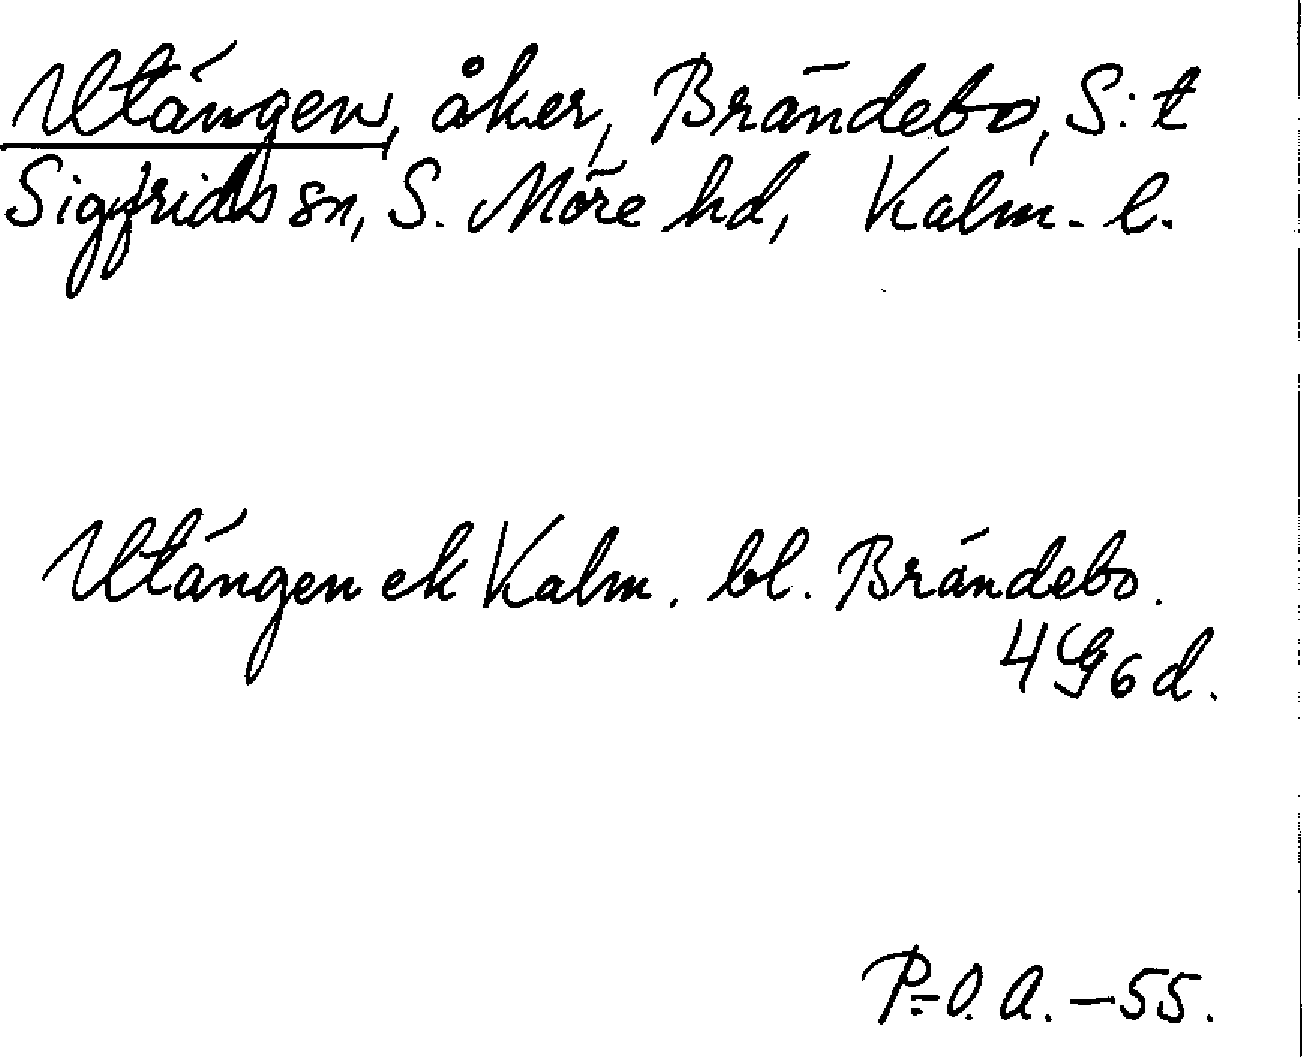 Utängen, åker, Brändebo, S:t
Sigfrids sn, S. Möre hd, Kalm. l.
Utängen ek Kalm. bl. Brändebo.
4G6d.
P.-O. A. - 55.